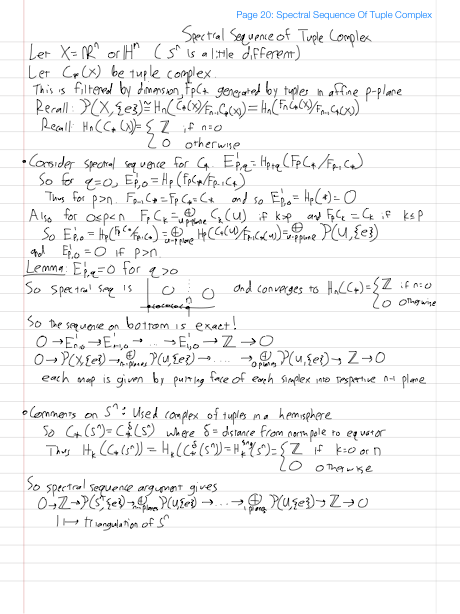 Page 20: Spectral Sequence Of Tuple Complex
Spectral Sequence of Tuple Complex
Let X = ℝⁿ or ℍⁿ ( Sⁿ is a little different)
Let C_*(X) be tuple complex.
This is filtered by dimension, F_pC_* generated by tuples in affine p-plane
Recall: P(X,{e}) ≅ H_n(C_*(X)/F_{n-1}C_*(X)) = H_n(F_nC_*(X)/F_{n-1}C_*(X))
Recall: H_n(C_*(X)) = { ℤ if n=0
0 otherwise
• Consider spectral sequence for C_*. E¹_{p,q} = H_{p+q}(F_pC_*/F_{p-1}C_*)
So for q=0, E¹_{p,0} = H_p(F_pC_*/F_{p-1}C_*)
Thus for p>n. F_{p-1}C_* = F_pC_* = C_* and so E¹_{p,0} = H_p(*) = 0
Also for 0≤p<n F_pC_k = ⊕_{U p-plane} C_k(U) if k>p and F_pC_k = C_k if k≤p
So E¹_{p,0} = H_p(F_pC_*/F_{p-1}C_*) = ⊕_{U p-plane} H_p(C_*(U)/F_{p-1}C_*(U)) = ⊕_{U p-plane} P(U,{e})
and E¹_{p,0} = 0 if p>n.
Lemma: E¹_{p,q} = 0 for q>0
So spectral seq is 0 0 and converges to H_n(C_*) = { ℤ if n=0
0 otherwise
So the sequence on bottom is exact!
0 → E¹_{n,0} → E¹_{n-1,0} → ... → E¹_{0,0} → ℤ → 0
0 → P(X,{e}) → ⊕_{n-1 planes} P(U,{e}) → ... → ⊕_{0 planes} P(U,{e}) → ℤ → 0
each map is given by putting face of each simplex into respective n-1 plane
• Comments on Sⁿ: Used complex of tuples in a hemisphere
So C_*(Sⁿ) = C_*^δ(Sⁿ) where δ = distance from north pole to equator
Thus H_k(C_*(Sⁿ)) = H_k(C_*^δ(Sⁿ)) = H_k^{sing}(Sⁿ) = { ℤ if k=0 or n
0 otherwise
So spectral sequence argument gives
0 → ℤ → P(Sⁿ,{e}) → ⊕_{n-1 planes} P(U,{e}) → ... → ⊕_{1 planes} P(U,{e}) → ℤ → 0
1 ↦ triangulation of Sⁿ